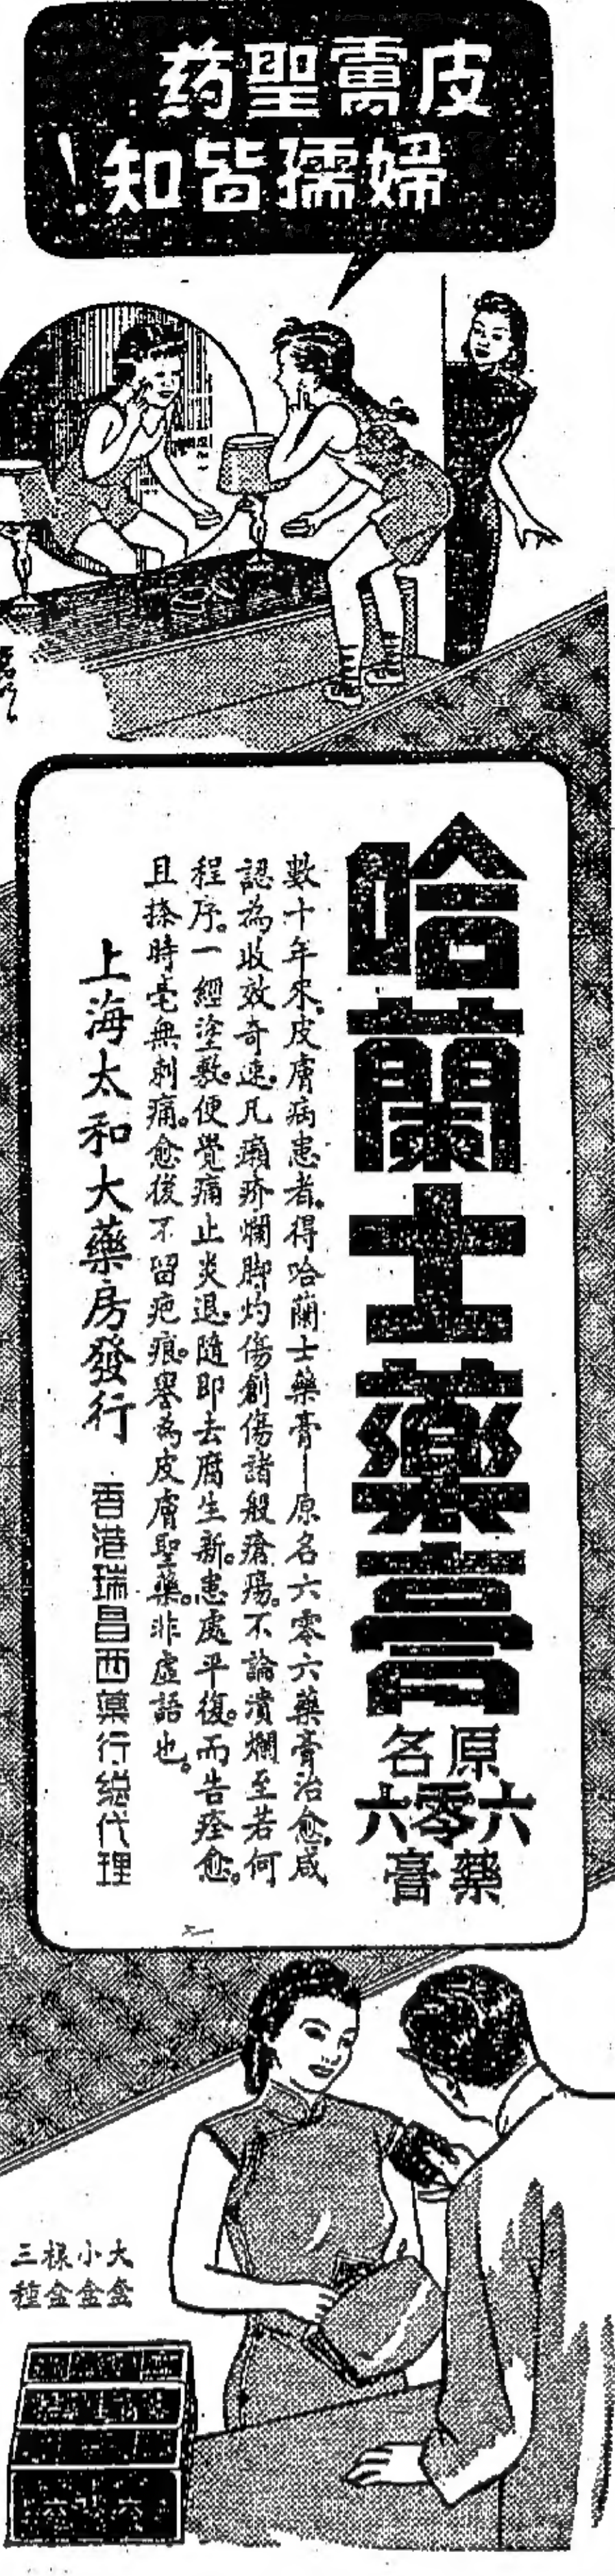 皮膚聖药
婦孺皆知！
哈蘭士藥膏
原名
六零六
藥膏
數十年來。皮膚病患者。得哈蘭士藥膏—原名六零六藥膏治愈。咸
認為收效奇速。凡癩疥爛脚灼傷創傷諸般瘡瘍。不論潰爛至若何
程序。一經塗敷。便覺痛止炎退。隨即去腐生新。患處平復。而告痊愈。
且搽時毫無刺痛。愈後不留疤痕。譽為皮膚聖藥。非虛語也。
上海太和大藥房發行
香港瑞昌西藥行總代理
大小樣三
盒盒盒種
六〇六